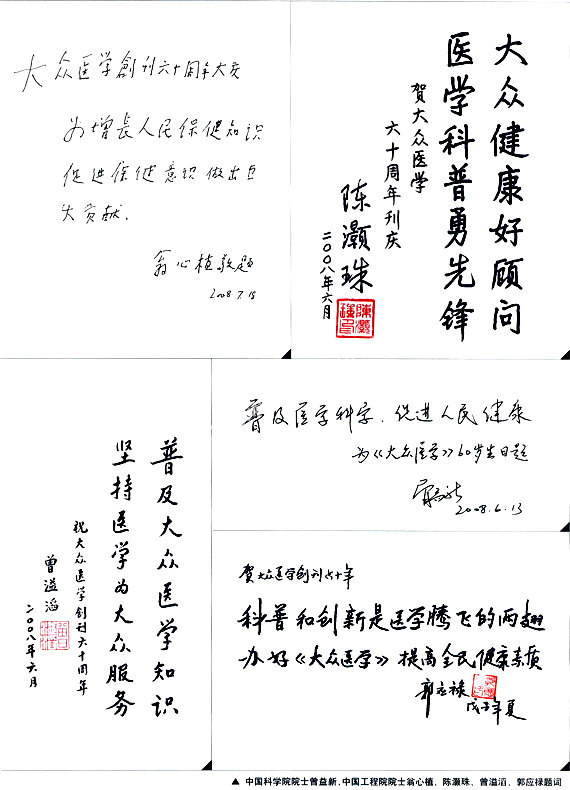 大众医学创刊六十周年大庆
为增长人民保健知识
促进保健意识做出巨
大贡献.
翁心植敬题
2008.7.15
大众健康好顾问
医学科普勇先锋
贺大众医学
六十周年刊庆
陈灏珠
二〇〇八年六月
普及医学科学、促进人民健康
为《大众医学》60岁生日题
2008.6.13
普及大众医学知识
坚持医学为大众服务
祝大众医学创刊六十周年
曾溢滔
二〇〇八年六月
贺大众医学创刊六十年
科普和创新是医学腾飞的两翅
办好《大众医学》提高全民健康素质
郭应禄
戊子年夏
▲ 中国科学院院士曾益新、中国工程院院士翁心植、陈灏珠、曾溢滔、郭应禄题词